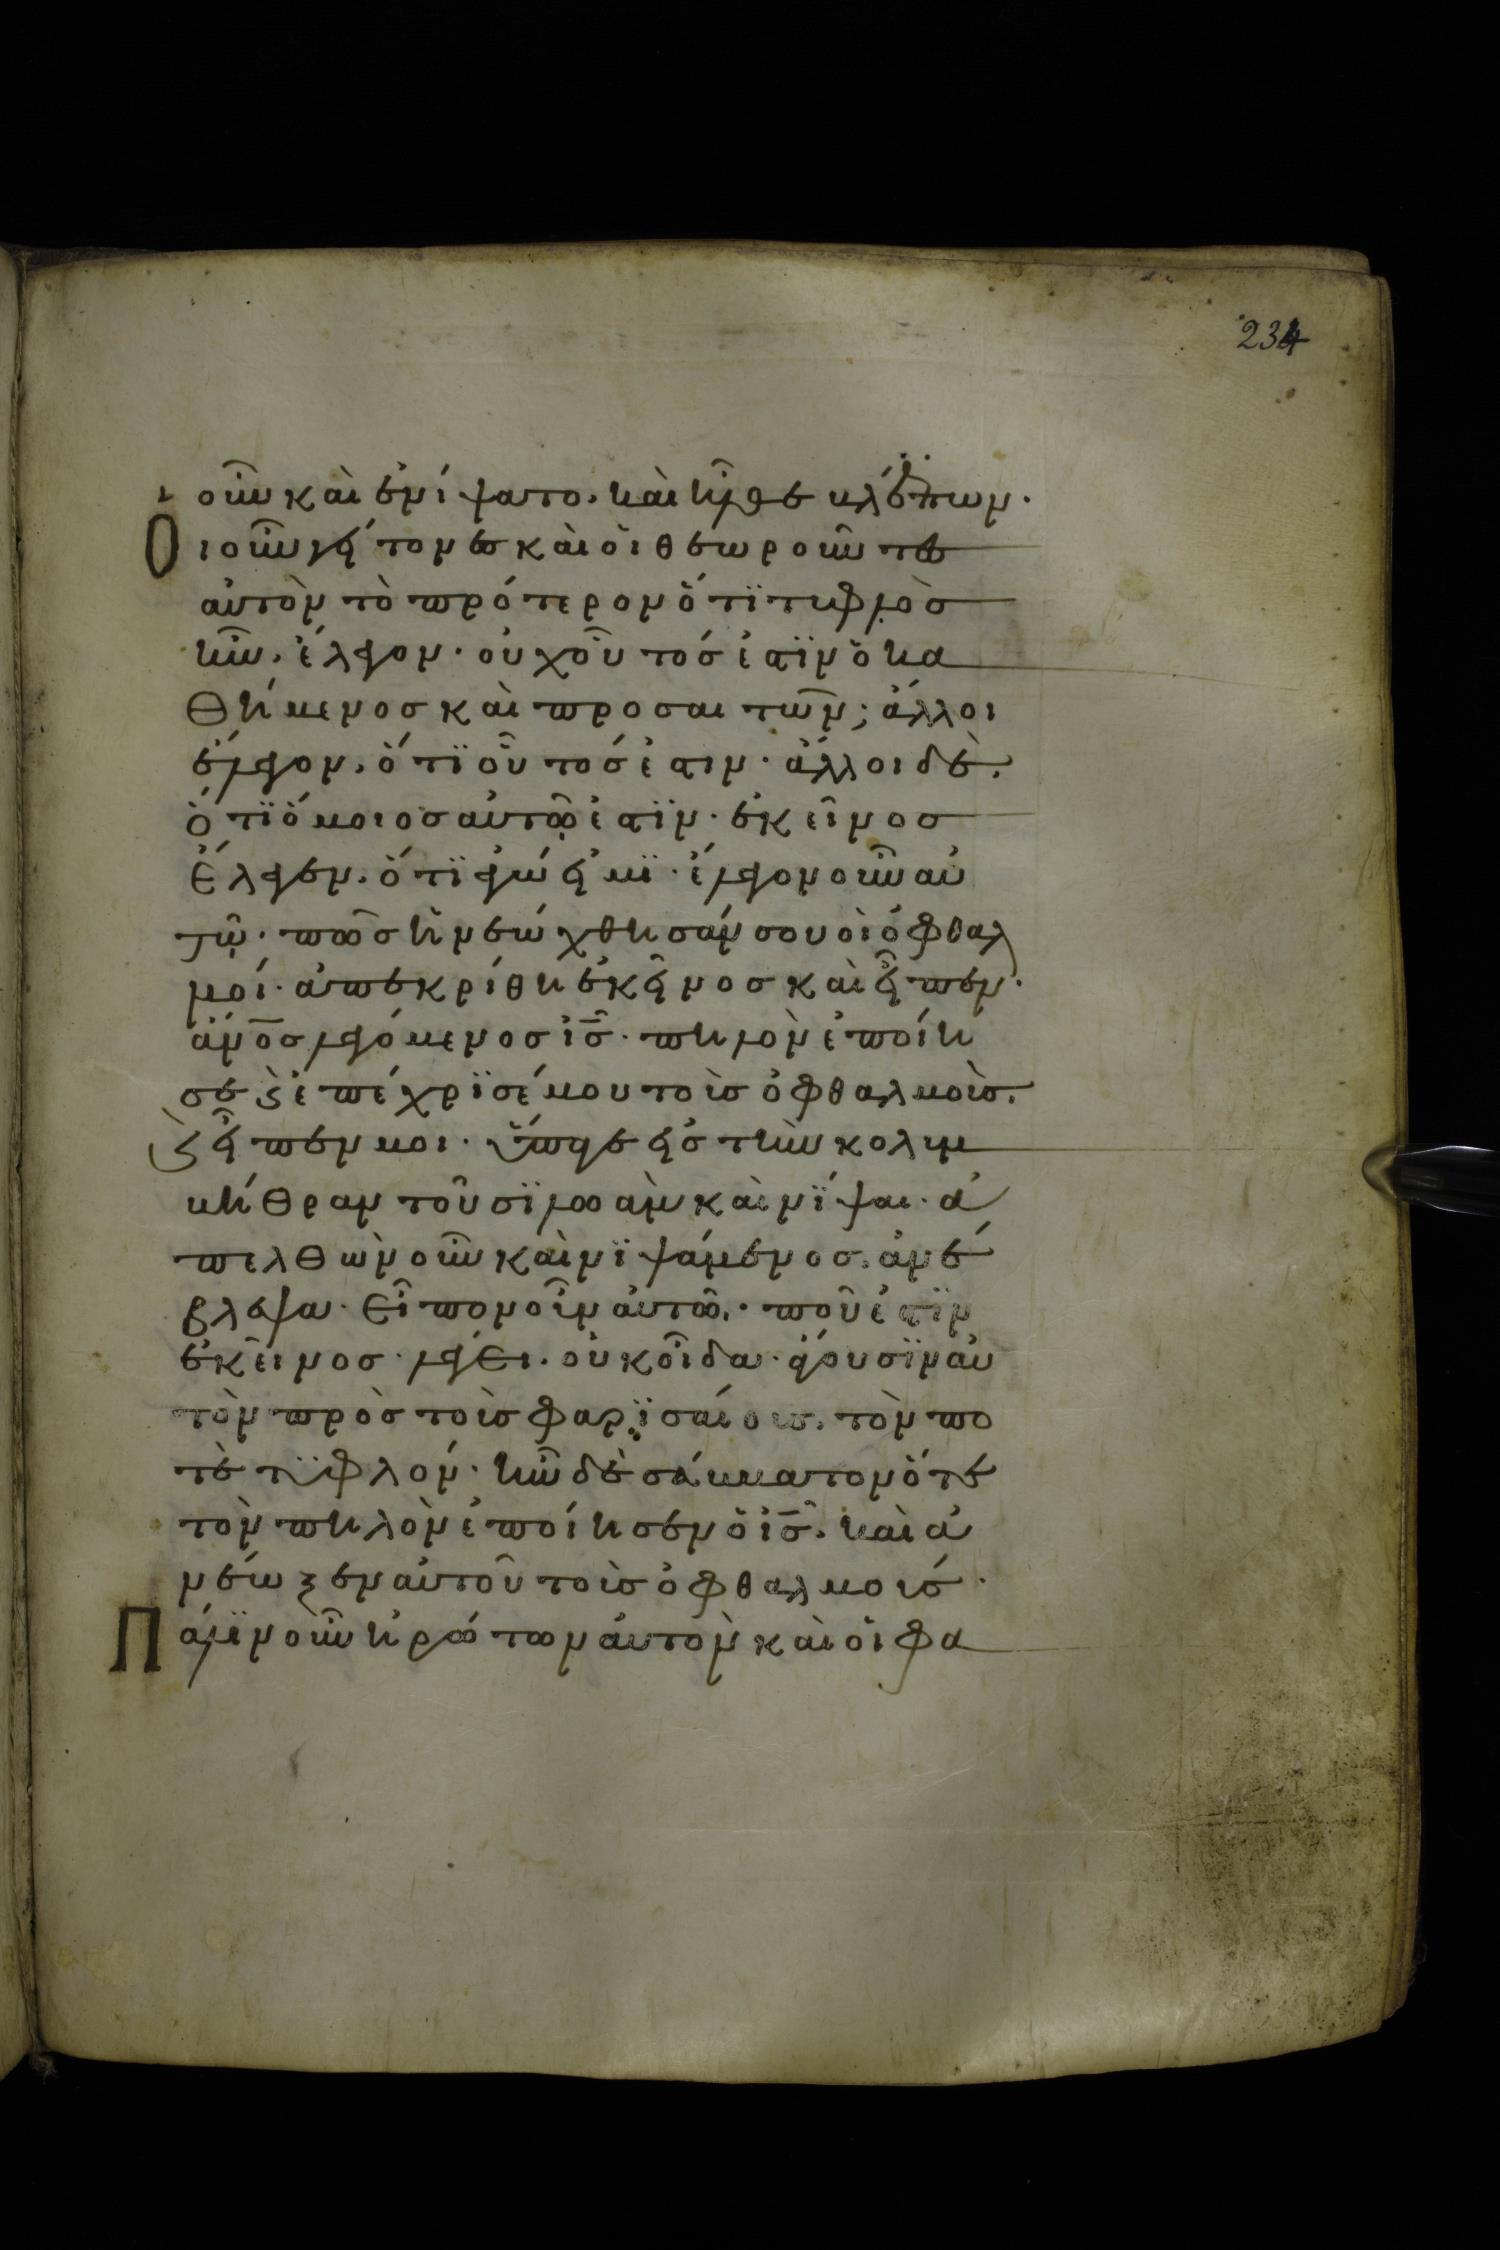 234
οὖν καὶ ἐνίψατο. καὶ ἦλθε βλέπων.
Οἱ οὖν γείτονες καὶ οἱ θεωροῦντες
αὐτὸν τὸ πρότερον ὅτϊ τυφλὸσ
ἦν. ἔλεγον. οὐχ οὗτόσ ἐστϊν ὁ κα
θήμενοσ καὶ προσαιτῶν; ἄλλοι
ἔλεγον. ὅτϊ οὗτόσ ἐστιν. ἄλλοι δὲ.
ὅτϊ ὅμοιοσ αὐτῶ ἐστϊν. ἐκεῖνοσ
ἔλεγεν. ὅτϊ ἐγώ εἰμϊ. ἔλεγον οὖν αὐ
τῶ. πῶσ ἠνεώχθησάν σου οἱ ὀφθαλ
μοί. ἀπεκρίθη ἐκεῖνοσ καὶ εἶπεν.
ἄνοσ λεγόμενοσ ισ. πηλὸν ἐποίη
σε ϗ ἐπέχρϊσέ μου τοὺσ ὀφθαλμούσ.
ϗ εἶπεν μοι. ὕπαγε εἰσ τὴν κολυμ
βήθραν τοῦ σϊλωὰμ καὶ νίψαι. ἀ
πελθὼν οὖν καὶ νϊψάμενοσ. ἀνέ
βλεψα. εἶπον οὖν αὐτῶ. ποῦ ἐστϊν
ἐκεῖνοσ. λέγει. οὐκ οἶδα. ἄγουσϊν αὐ
τὸν πρὸσ τοὺσ φαρϊσαίουσ. τὸν πο
τὲ τϋφλόν. ἦν δὲ σάββατον ὅτε
τὸν πηλὸν ἐποίησεν ὁ ισ. καὶ ἀ
νέωξεν αὐτοῦ τοὺσ ὀφθαλμούσ.
Πάλϊν οὖν ἠρώτων αὐτὸν καὶ οἱ φα